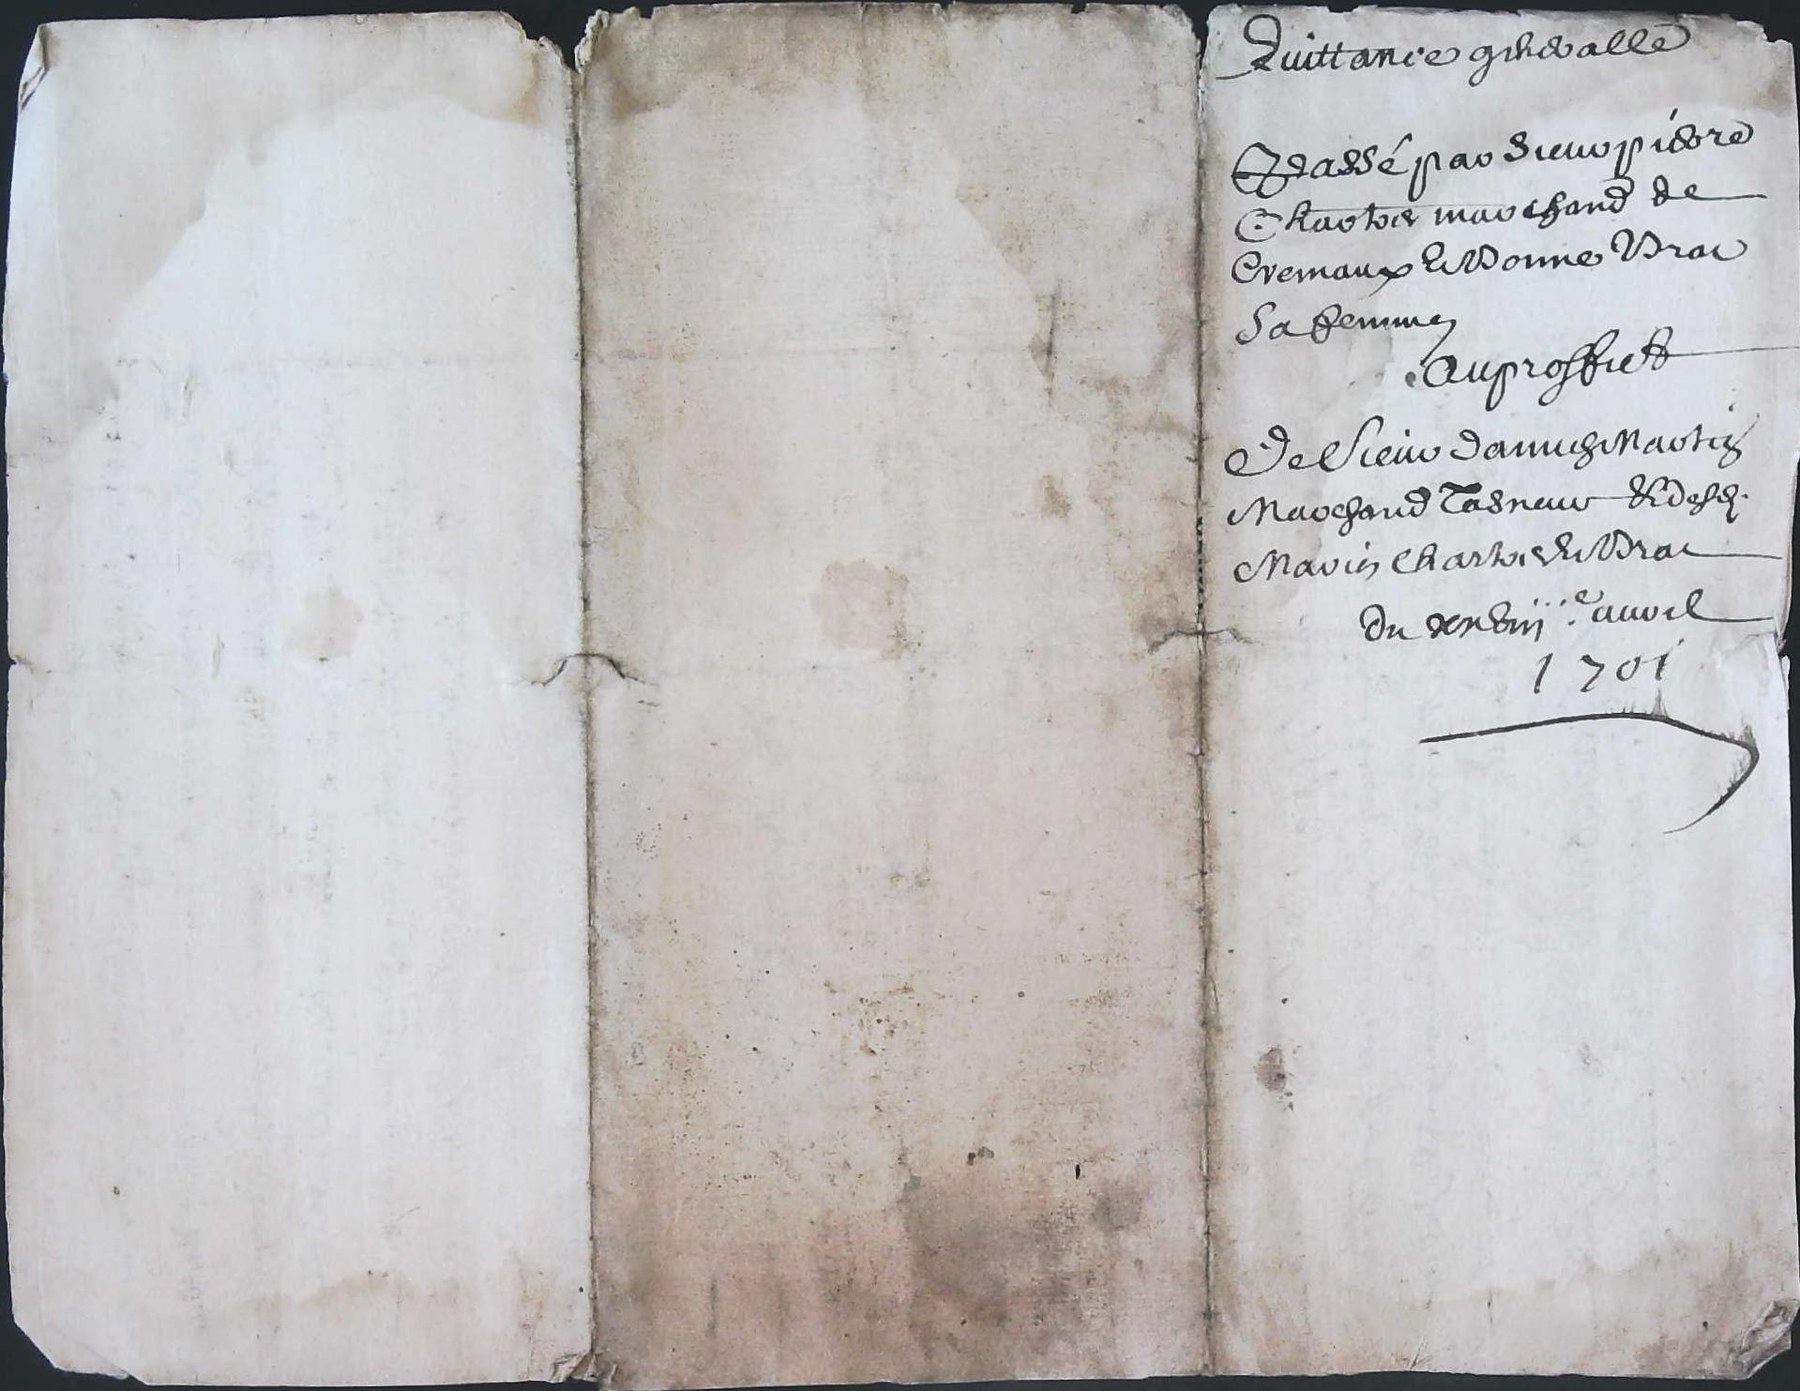 Quittance generalle
Passé par sieur pierre
Chartier marchand de
Cremaux et Bonne Vrac
Sa femme
Au proffict
De Sieur Martin
Marchand Tasneur et de
Marie Chartier et Vrac
du xxviije auvril
1701